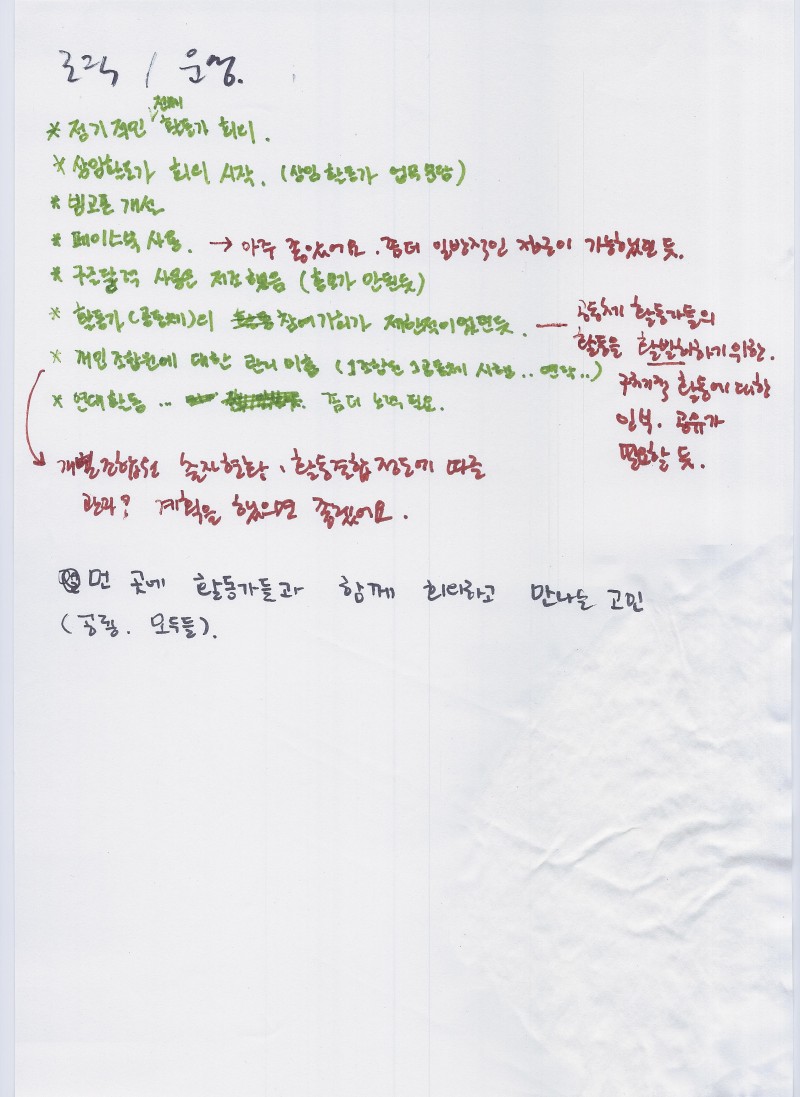 조직 / 운영.
전체
* 정기적인 활동가 회의.
* 상임활동가 회의 시작. (상임활동가 업무분담)
* 빙고폰 개선
* 페이스북 사용. → 아주 좋았어요. 좀더 일반적인 접근이 가능했던 듯.
* 구즈달력 사용은 저조했음 (홍보가 안된듯)
* 활동가(공동체)의 참여가허가 제한적이었던듯.
공동체 활동가들의
활동을 활발하하기 위한.
구체적 활동에 대한
정보. 공유가
필요할 듯.
* 개인조합원에 대한 관리 미흡 (1조합원 1공동체 시행.. 연락..)
* 연대활동 ... 좀더 노력필요.
개별조합원 출자현황, 활동결합정도에 따른
관리? 계획을 했으면 좋겠어요.
먼 곳에 활동가들과 함께 회의하고 만나는 고민
(공룡. 모두들).